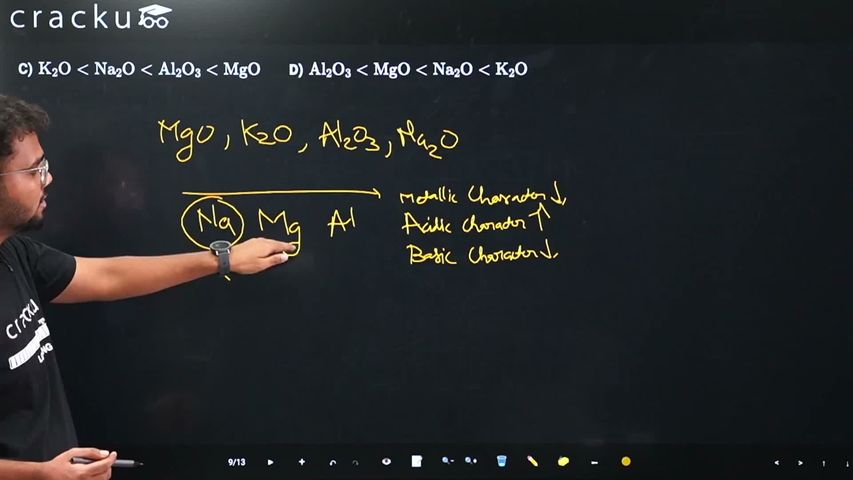 cracku
C) K₂O < Na₂O < Al₂O₃ < MgO D) Al₂O₃ < MgO < Na₂O < K₂O
MgO, K2O, Al₂O₃, Na₂O
Na Mg Al
Metallic Character ↓
Acidic Character ↑
Basic Character ↓
9/13